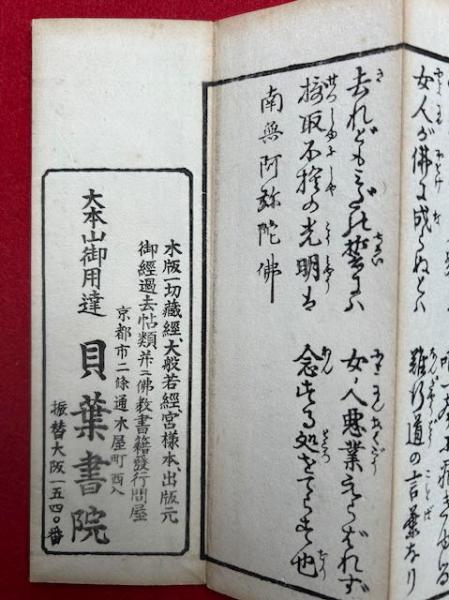 女人が佛に成らぬとハ
難行道の言葉なり
去れどもミだの誓にハ
女人悪業えらばれず
摂取不捨の光明は
念ずる処をてらす也
南無阿弥陀佛
木版一切藏經、大般若經、宮樣本、出版元
御經過去帖類并ニ佛教書籍發行問屋
京都市二條通木屋町西入
大本山御用達 貝葉書院
振替大阪一五四〇番